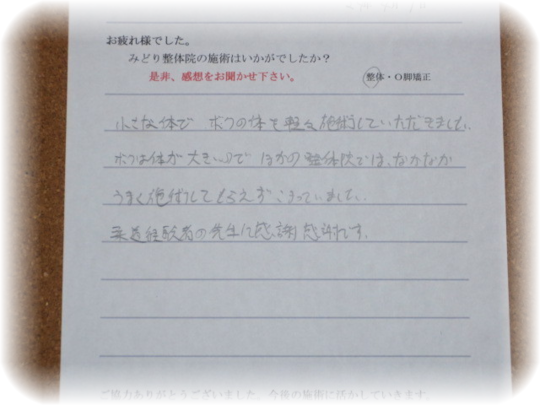 お疲れ様でした。
みどり整体院の施術はいかがでしたか？
是非、感想をお聞かせ下さい。
整体・O脚矯正
小さな体で ボクの体を軽々施術していただきました。
ボクは体が大きいので ほかの整体院では、なかなか
うまく施術してもらえず こまっていました。
柔道経験者の先生に感謝感謝です。
ご協力ありがとうございました。今後の施術に活かしていきます。